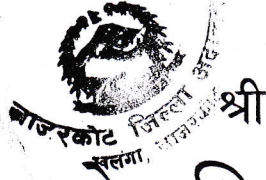 जाजरकोट जिल्ला अदालत
खलंगा, जाजरकोट
श्री